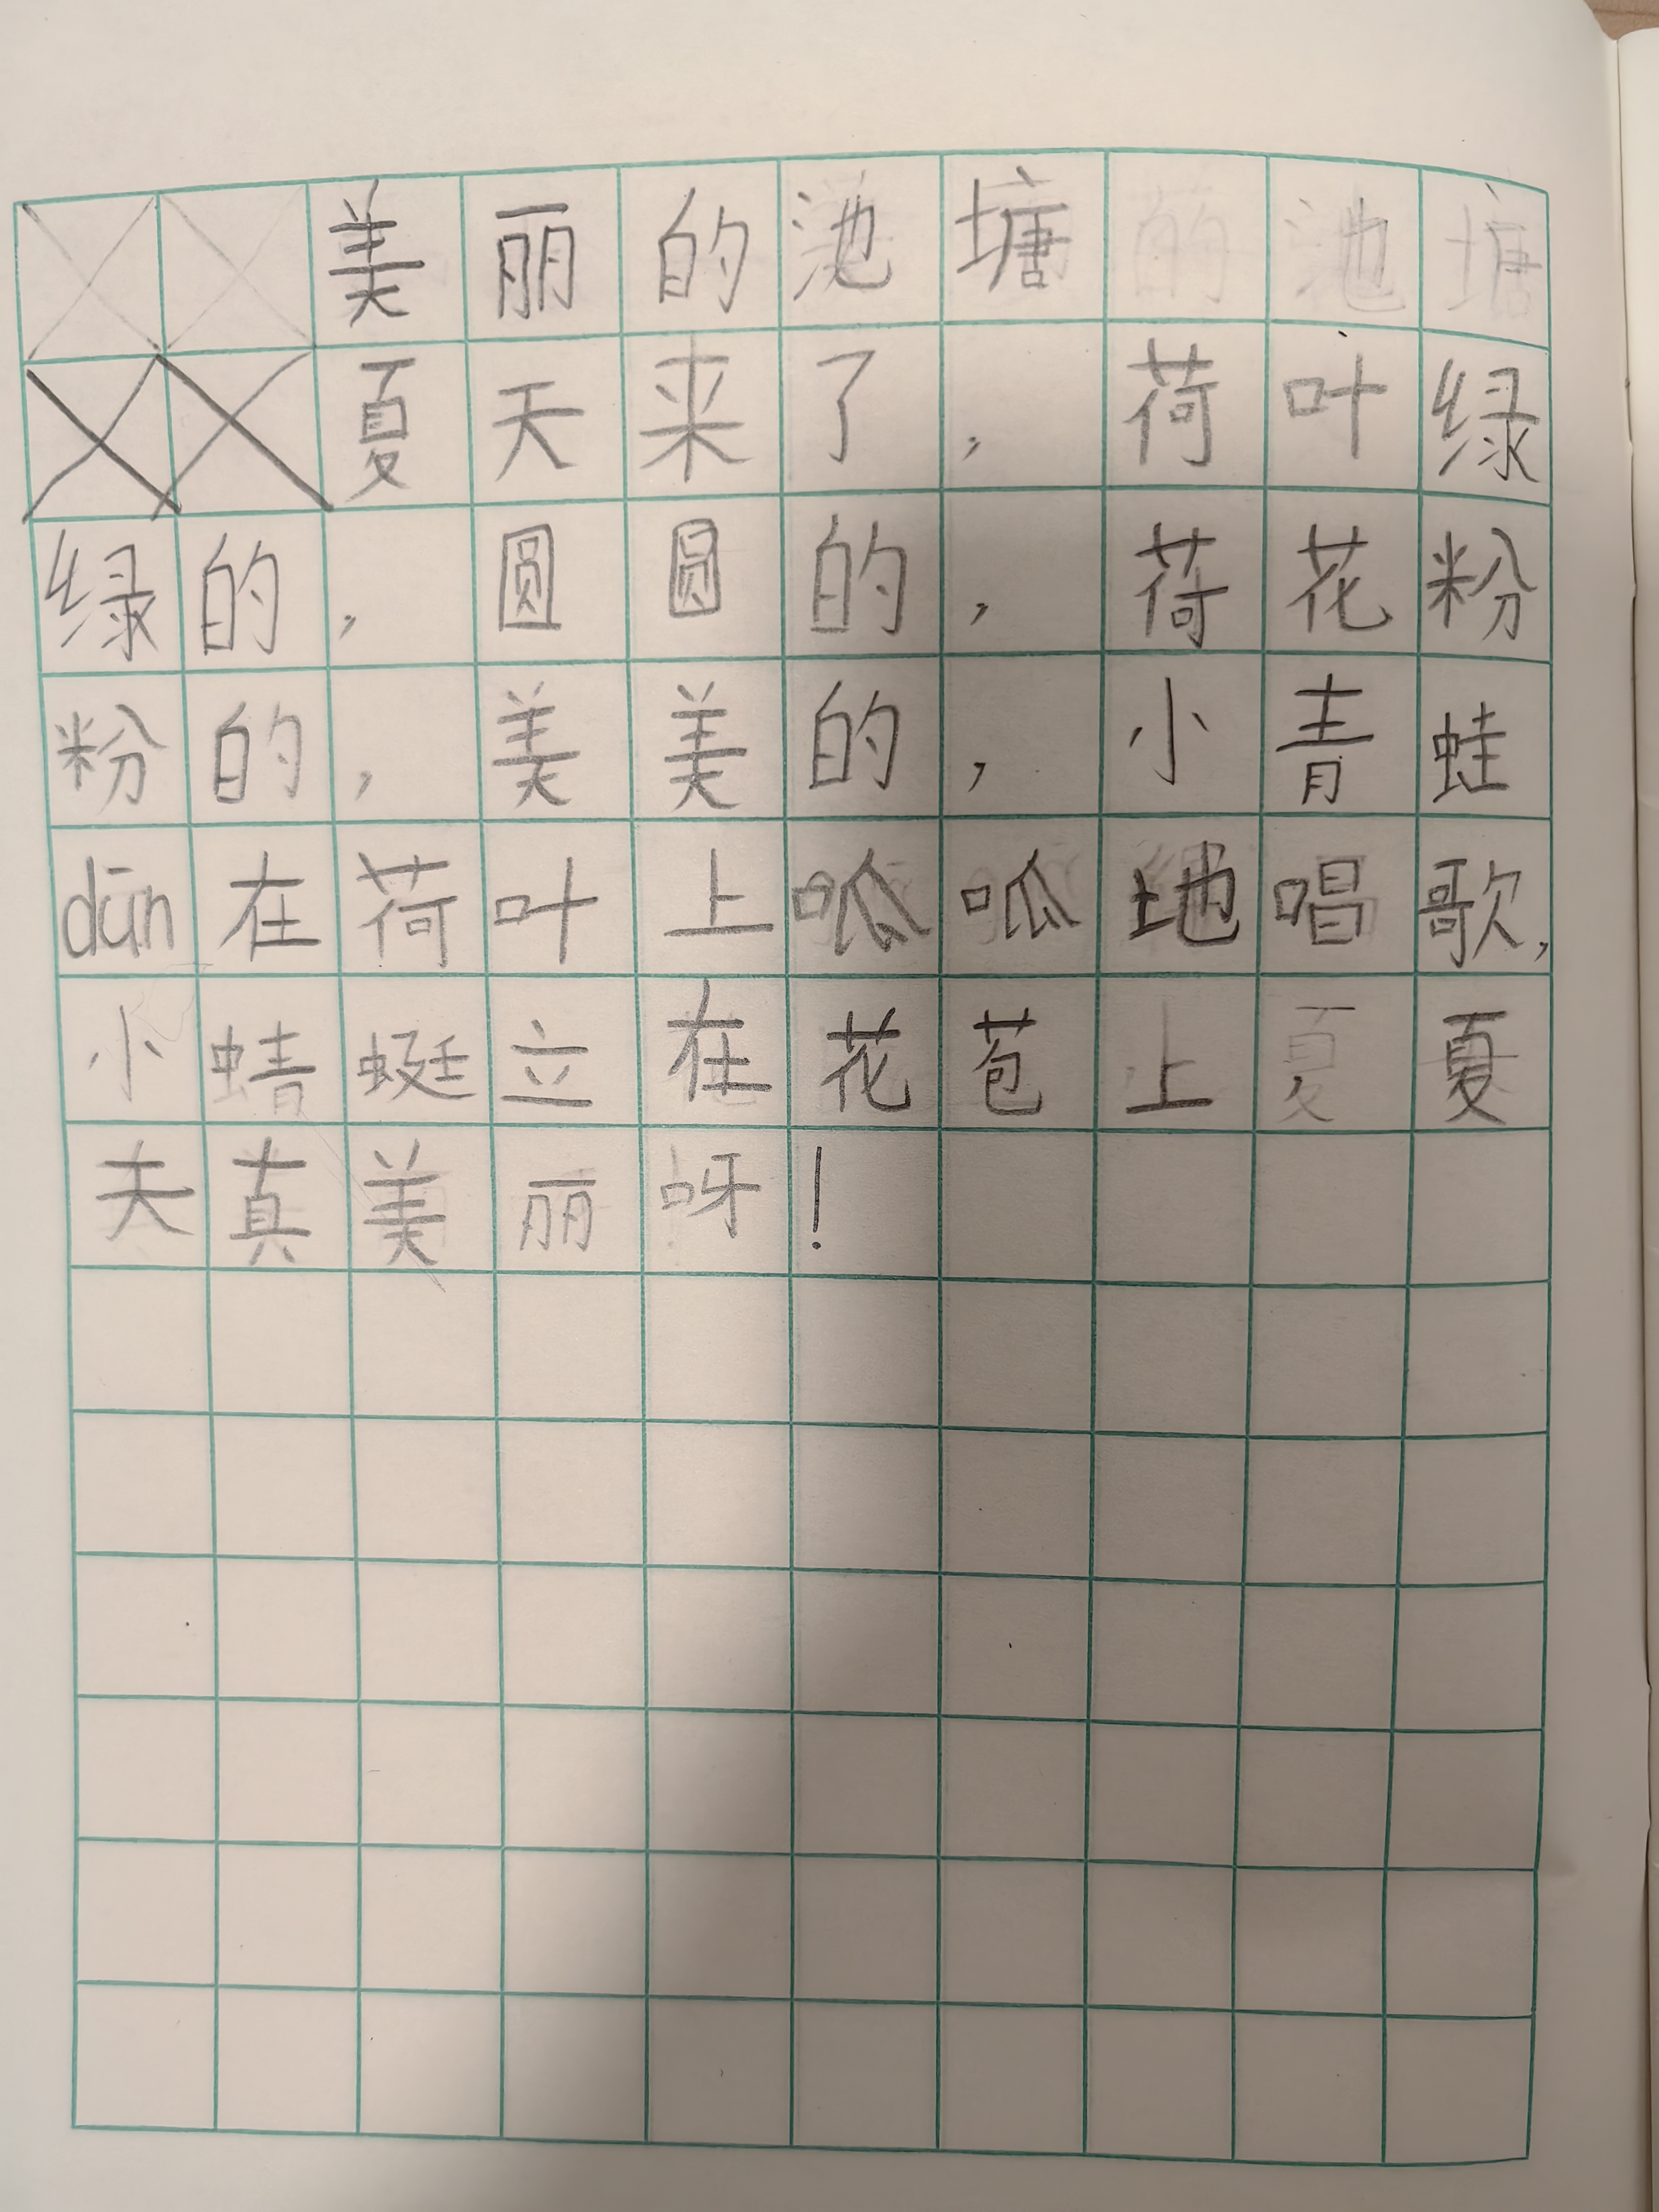 美丽的池塘
夏天来了，荷叶绿
绿的，圆圆的，荷花粉
粉的，美美的，小青蛙
dūn在荷叶上呱呱地唱歌，
小蜻蜓立在花苞上夏夏
天真美丽呀！